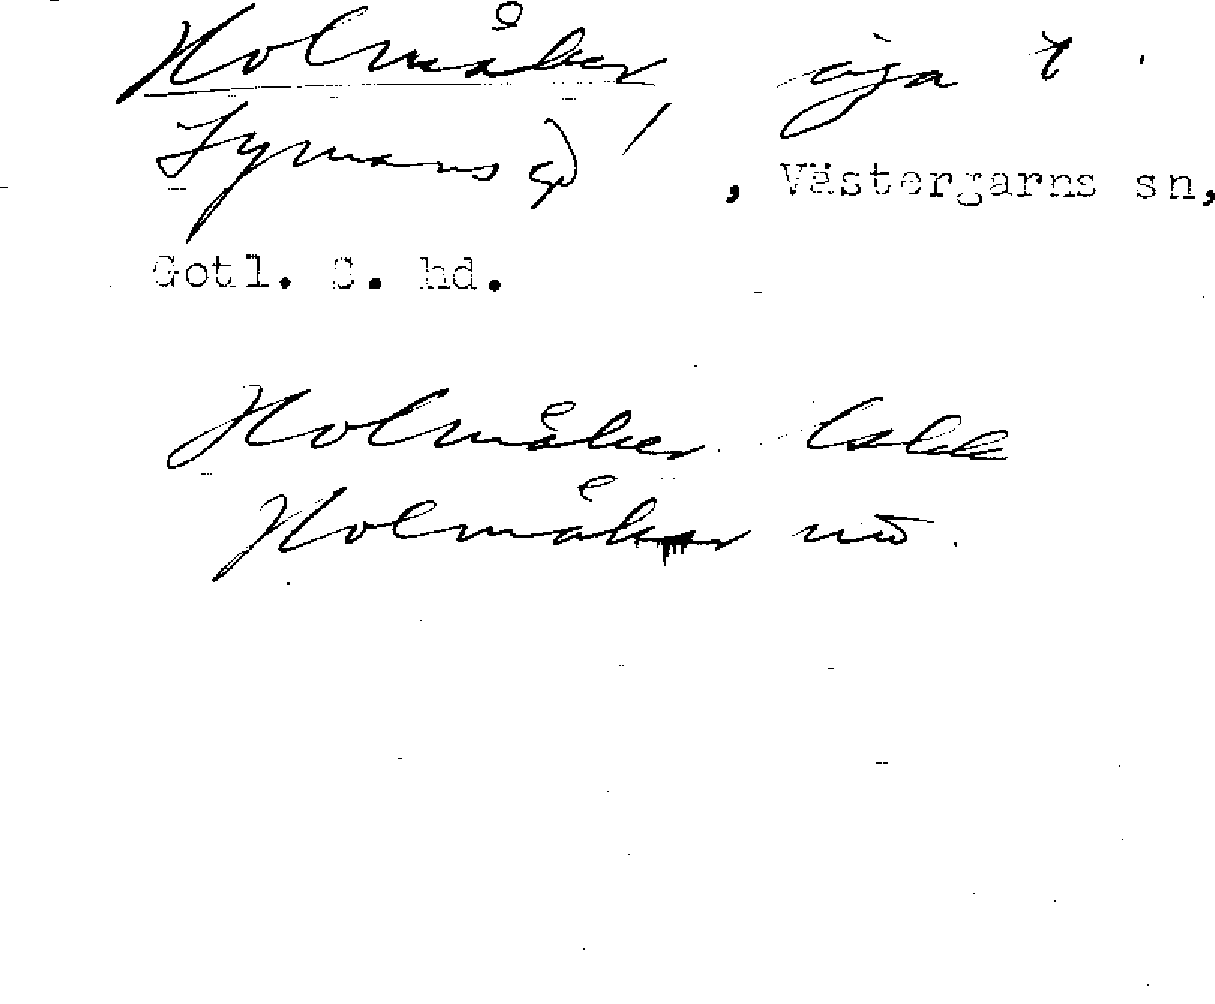 Holmåker, äga t
Fymans gd, Västergarns sn,
Gotl. S. hd.
Holmåker
Holmåker